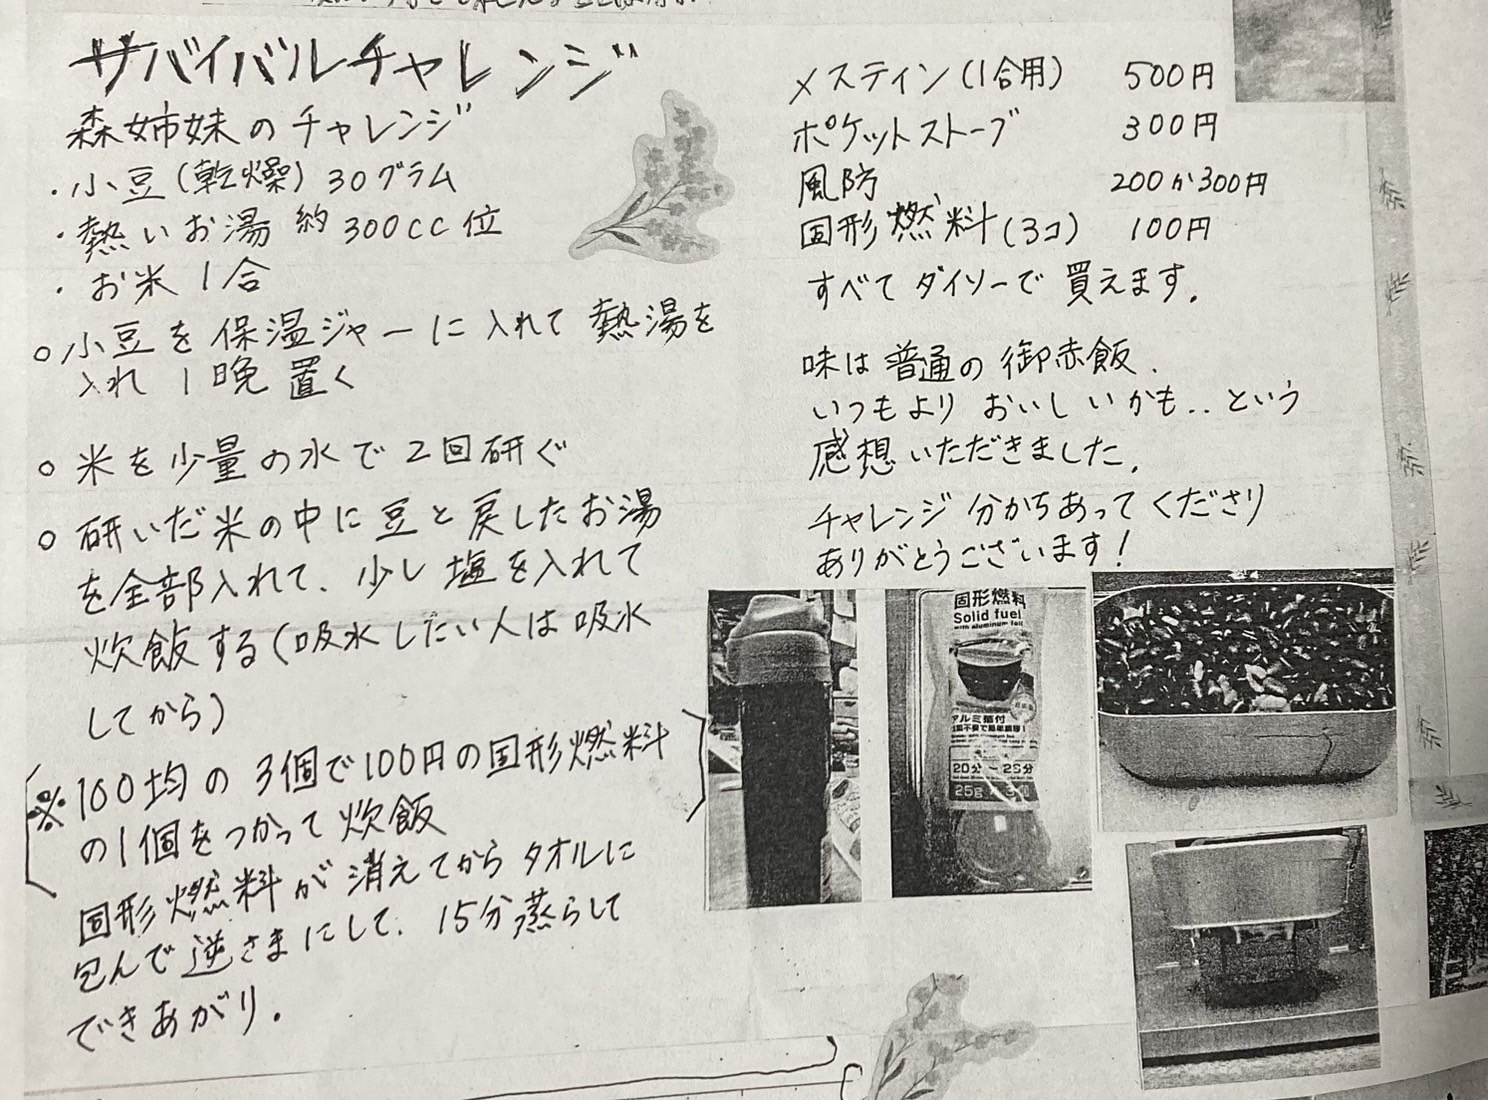 サバイバルチャレンジ
森姉妹のチャレンジ
・小豆(乾燥)30グラム
・熱いお湯 約300cc位
・お米 1合
○小豆を保温ジャーに入れて熱湯を
入れ1晩置く
○米を少量の水で2回研ぐ
○研いだ米の中に豆と戻したお湯
を全部入れて、少し塩を入れて
炊飯する(吸水したい人は吸水
してから)
※100均の3個で100円の固形燃料
の1個をつかって炊飯
固形燃料が消えてからタオルに
包んで逆さまにして、15分蒸らして
できあがり.
メスティン(1合用) 500円
ポケットストーブ 300円
風防 200か300円
固形燃料(3コ) 100円
すべてダイソーで買えます.
味は普通の御赤飯.
いつもよりおいしいかも..という
感想いただきました.
チャレンジ分かちあってくださり
ありがとうございます!
固形燃料
Solid fuel
with aluminum foil
アルミ箔付
20分〜25分
25g×3個